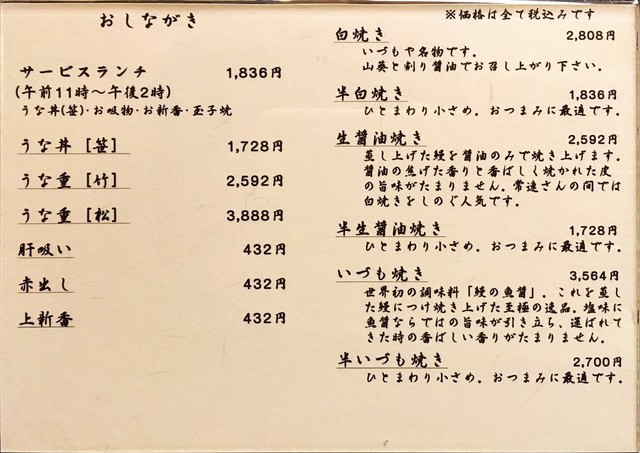 おしながき
サービスランチ 1,836円
(午前11時～午後2時)
うな丼(笹)・お吸物・お新香・玉子焼
うな丼[笹] 1,728円
うな重[竹] 2,592円
うな重[松] 3,888円
肝吸い 432円
赤出し 432円
上新香 432円
※価格は全て税込みです
白焼き 2,808円
いづもや名物です。
山葵と割り醤油でお召し上がり下さい。
半白焼き 1,836円
ひとまわり小さめ。おつまみに最適です。
生醤油焼き 2,592円
蒸し上げた鰻を醤油のみで焼き上げます。
醤油の焦げた香りと香ばしく焼かれた皮
の旨味がたまりません。常連さんの間では
白焼きをしのぐ人気です。
半生醤油焼き 1,728円
ひとまわり小さめ。おつまみに最適です。
いづも焼き 3,564円
世界初の調味料「鰻の魚醤」。これを蒸し
た鰻につけ焼き上げた至極の逸品。塩味に
魚醤ならではの旨味が引き立ち、運ばれて
きた時の香ばしい香りがたまりません。
半いづも焼き 2,700円
ひとまわり小さめ。おつまみに最適です。